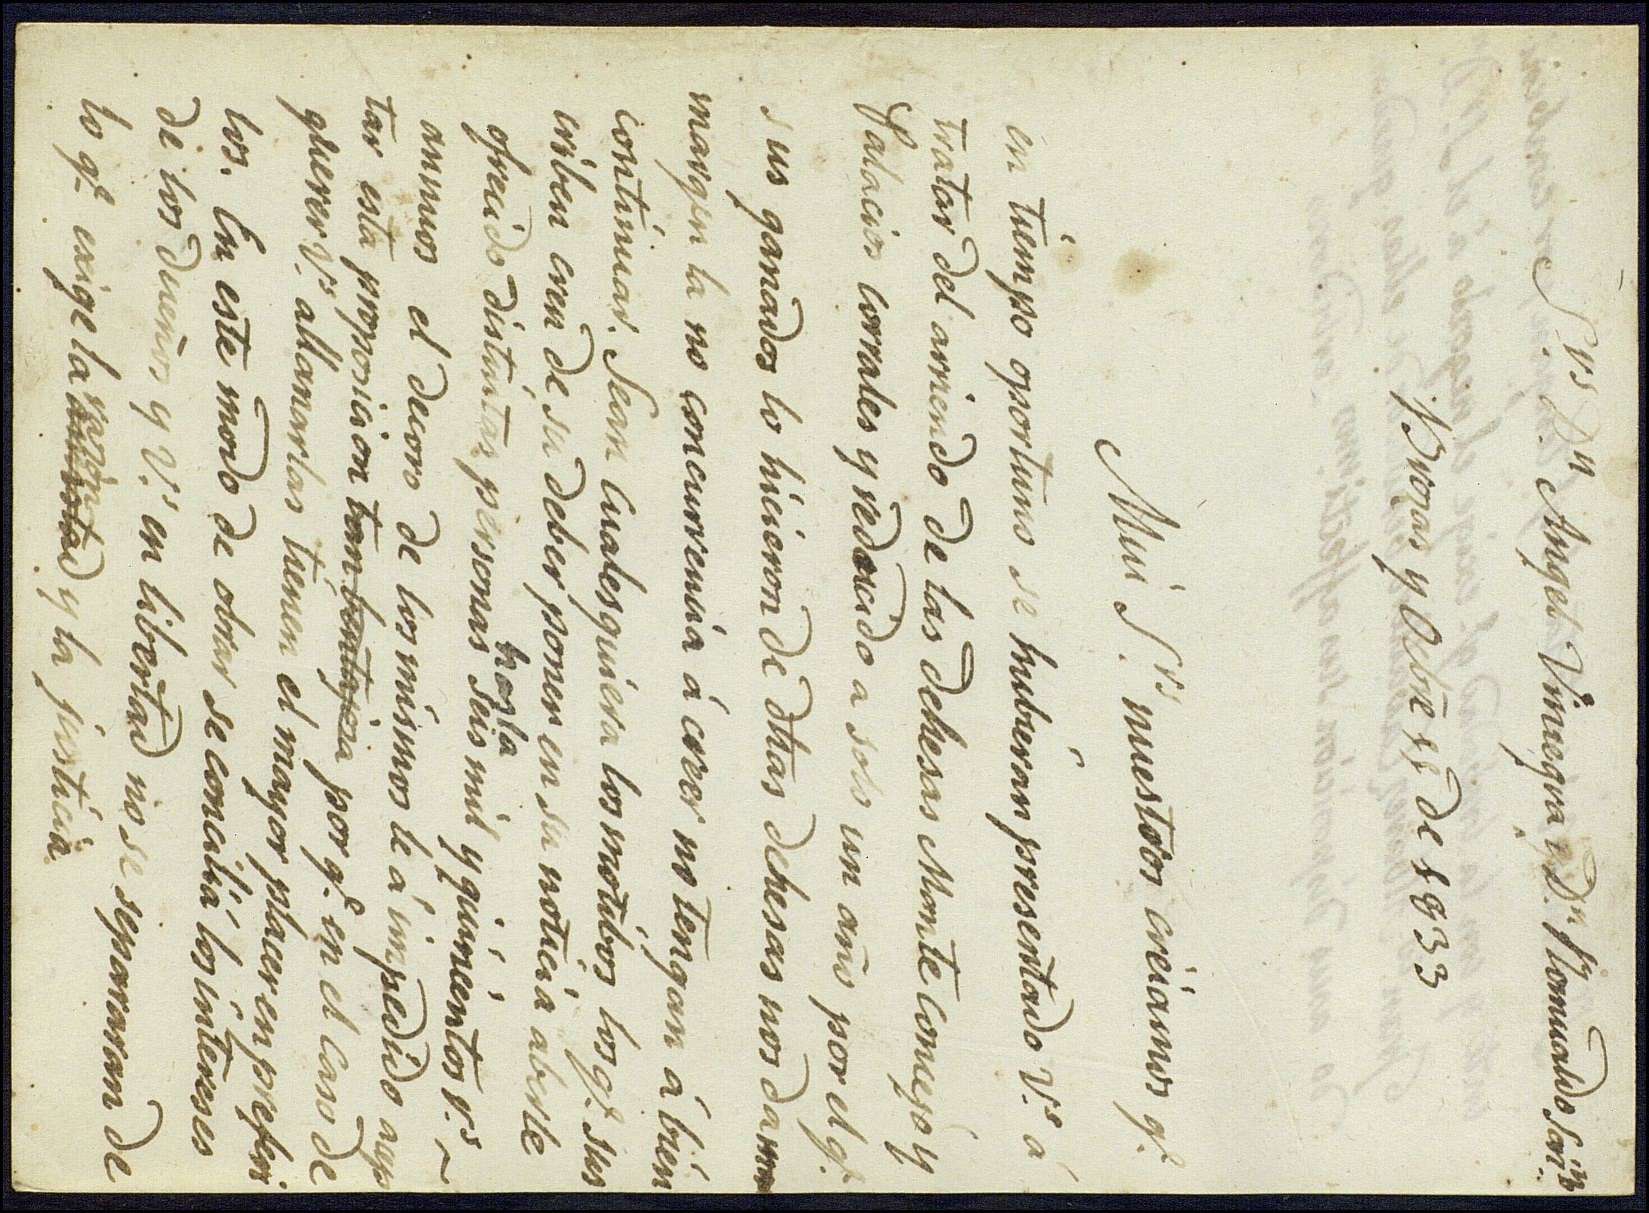 S.res D.n Angel Vinuegra y D.n Romualdo Sori.no
Brozas y Octbre 18 de 1833
Mui S.res nuestros creiamos q.e
en tiempo oportuno se hubieran presentado V.s á
tratar del arriendo de las dehesas Monte Conejo y
Palacios Corrales y reducido a solo un año por el q.e
sus ganados lo hicieron de dhas dehesas nos da
margen la no concurrencia á creer no tengan á bien
continuar. Sean Cualesquiera los motibos los q.e sus
criben creen de su deber poner en su noticia aberle
ofrecido distintas personas hasta seis mil y quinientos r.s
annuos el decoro de los mismos le á impedido acep
tar esta proposicion tan bentajosa por q.e en el caso de
querer V.s allanarlas tienen el mayor placer en preferir
los. En este modo de obrar se concilia los intereses
de los dueños y V.s en libertad no se separaran de
lo q.e exige la razon y la justicia.